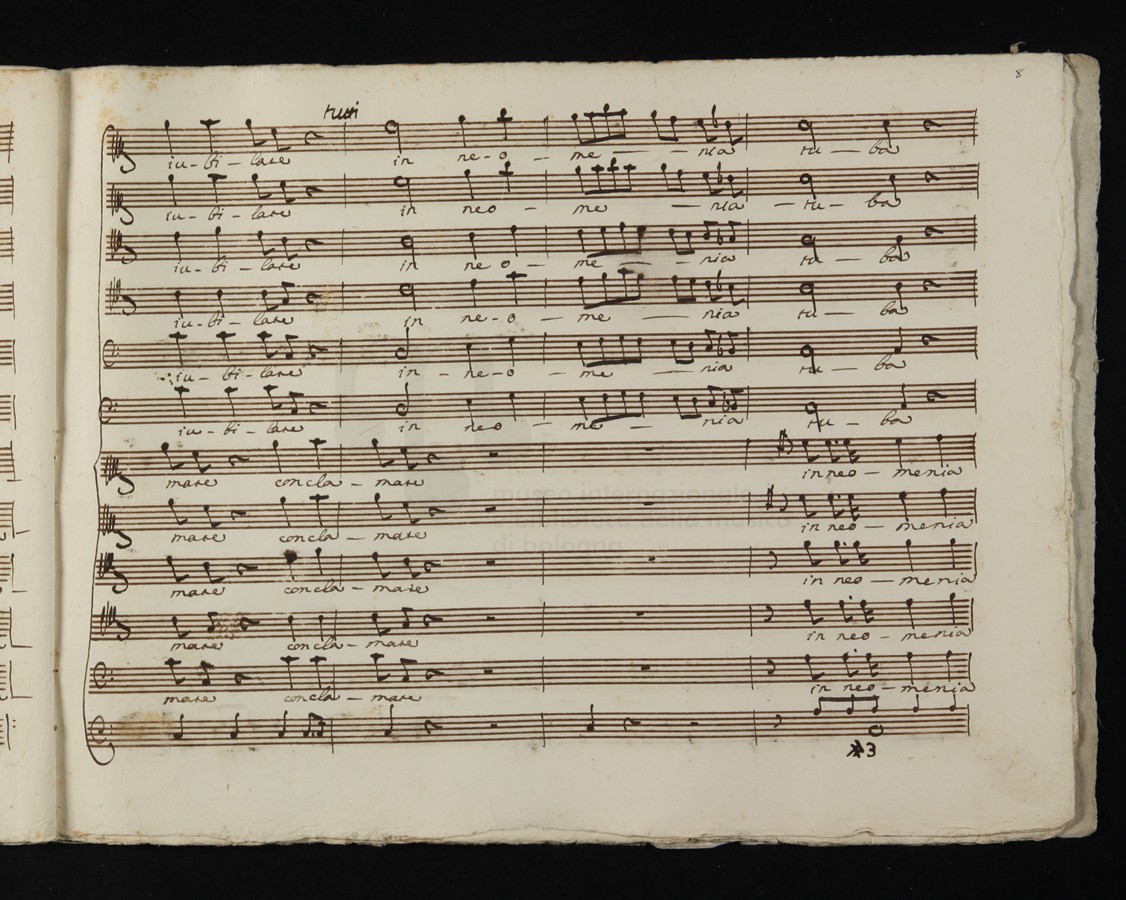 8
tutti
iu - bi - late in ne - o - me - nia tu - ba
iu - bi - late in neo - me - nia - tu - ba
iu - bi - late in ne o - me - nia tu - ba
iu - bi - late in ne - o - me - nia tu - ba
iu - bi - late in - ne - o - me - nia tu - ba
iu - bi - late in neo - me - nia tu - ba
mare concla - mare in neo - menia
museo internazionale
mare concla - mare in neo - menia
e biblioteca della musica
di bologna
mare concla - mare in neo - menia
mare concla - mare in neo - menia
mare concla - mare in neo - menia
3